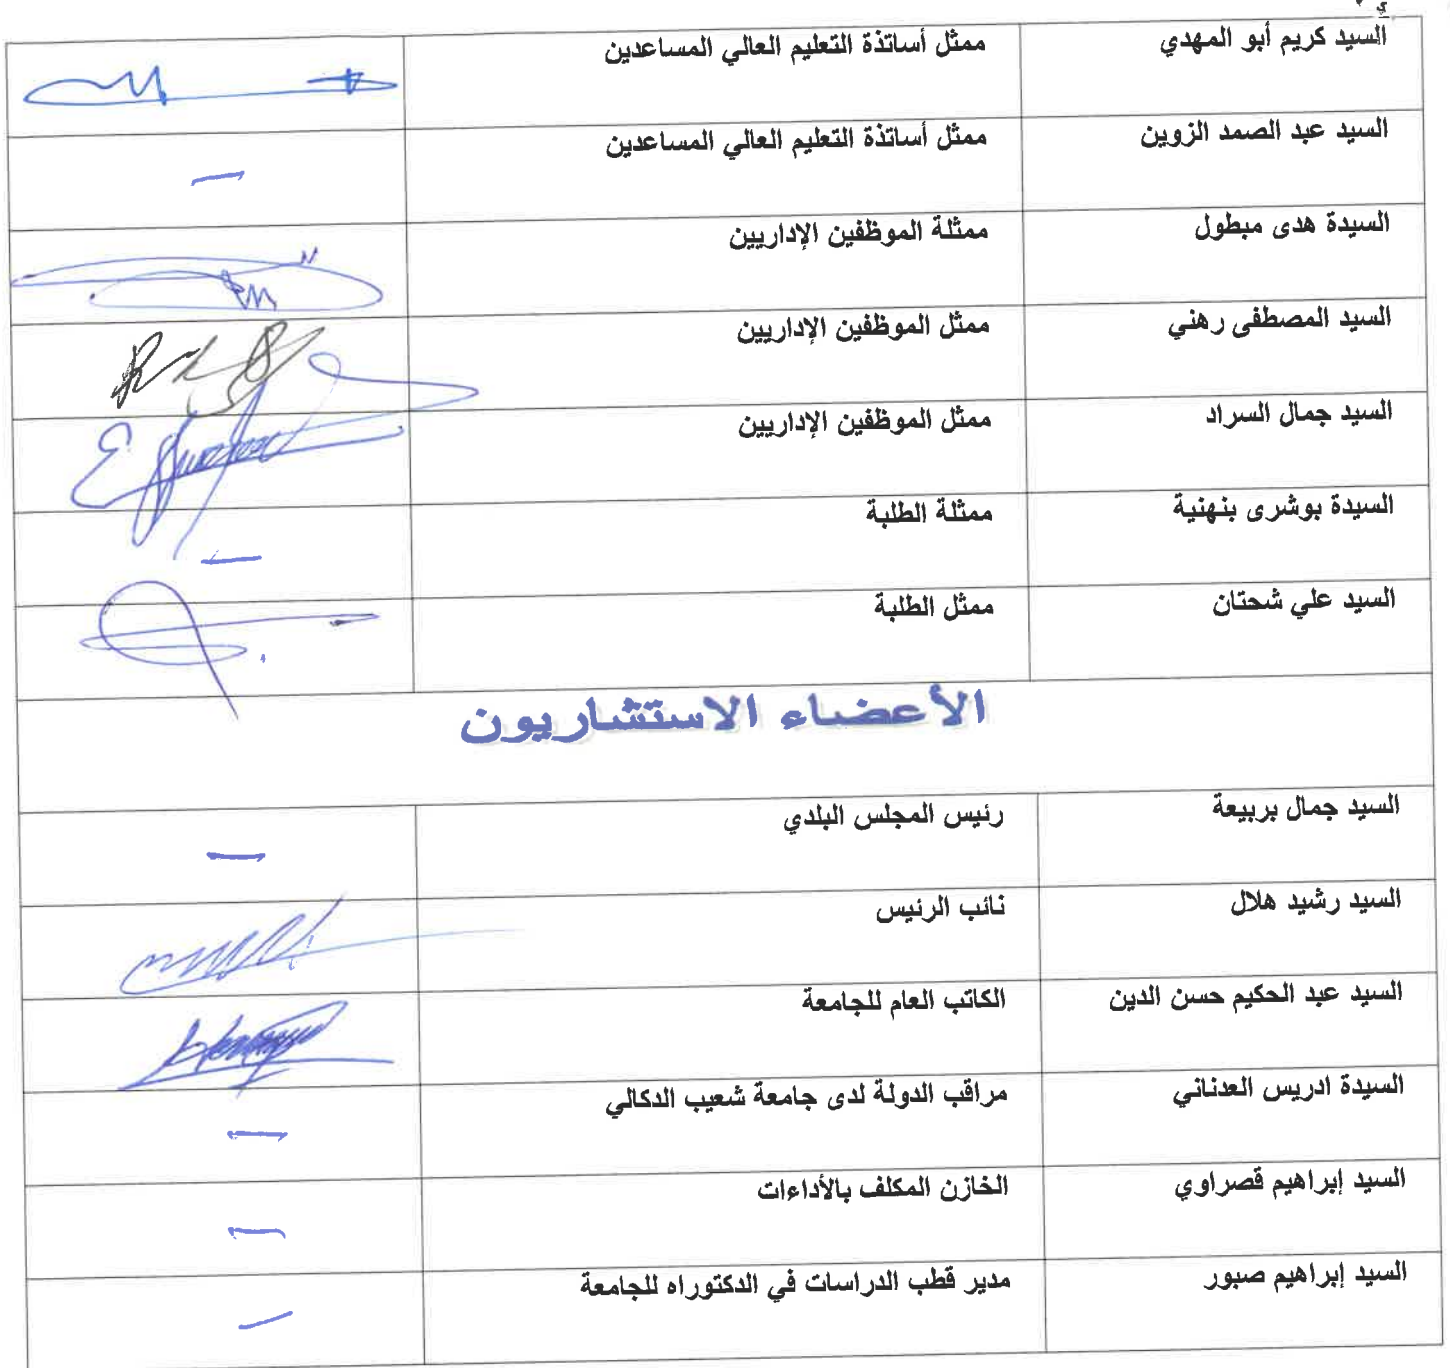 السيد كريم أبو المهدي ممثل أساتذة التعليم العالي المساعدين
السيد عبد الصمد الزوين ممثل أساتذة التعليم العالي المساعدين
السيدة هدى مبطول ممثلة الموظفين الإداريين
السيد المصطفى رهني ممثل الموظفين الإداريين
السيد جمال السراد ممثل الموظفين الإداريين
السيدة بوشرى بنهنية ممثلة الطلبة
السيد علي شحتان ممثل الطلبة
الأعضاء الاستشاريون
السيد جمال بربيعة رئيس المجلس البلدي
السيد رشيد هلال نائب الرئيس
السيد عبد الحكيم حسن الدين الكاتب العام للجامعة
السيدة ادريس العدناني مراقب الدولة لدى جامعة شعيب الدكالي
السيد إبراهيم قصراوي الخازن المكلف بالأداءات
السيد إبراهيم صبور مدير قطب الدراسات في الدكتوراه للجامعة